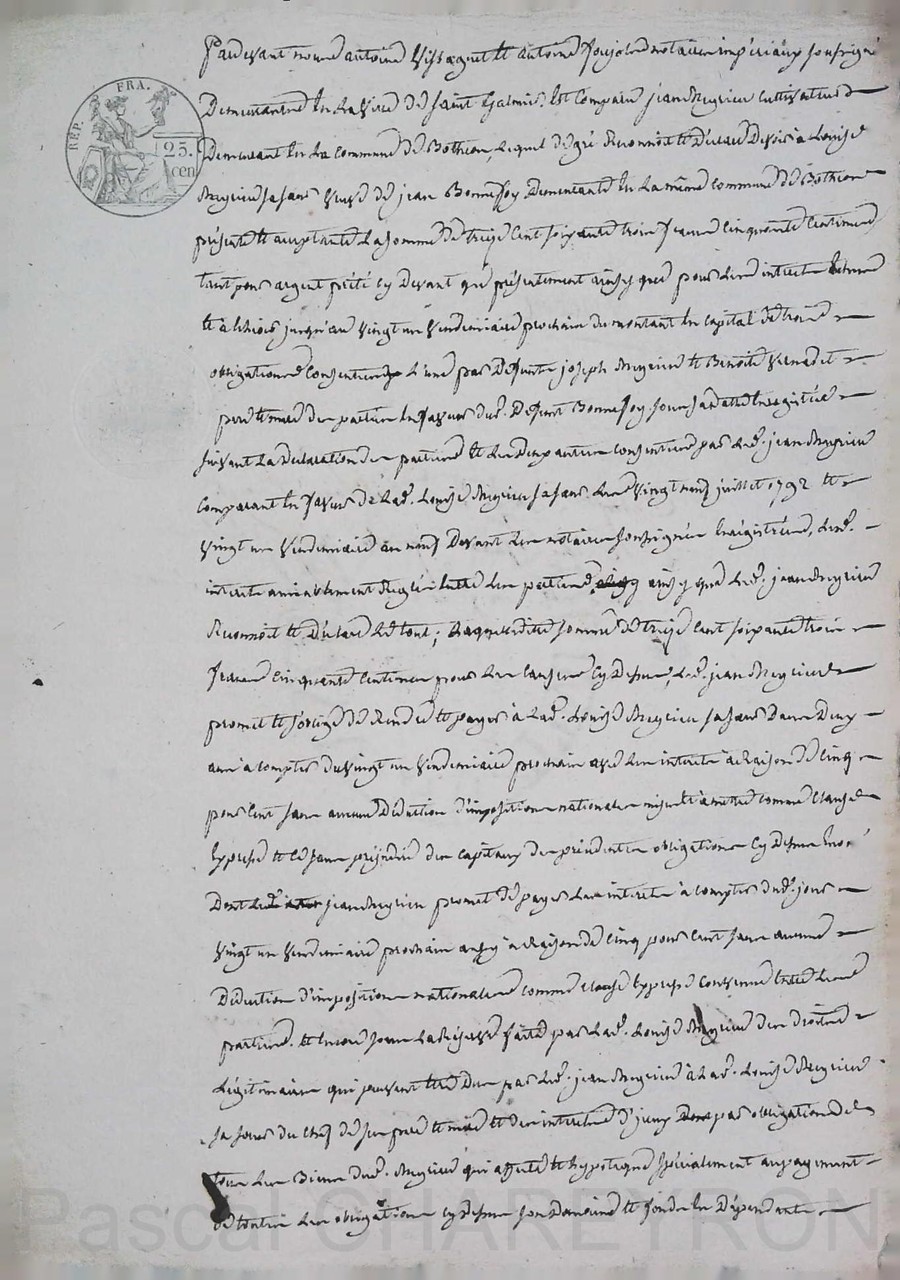 RÉP. FRA.
25. cen
Pardevant nous antoine Vissaguet et antoine Poujol notaires impériaux soussignés
Demeurants En La Ville de Saint Galmier. Est Comparu jean Meynieu cultivateur
Demeurant En La Commune de Bothéon, Lequel de gré Reconnoit et Déclare Devoir à Louise
Meynieu sa sœur Veuve de jean Bonnefoy Demeurante En La même Commune de Bothéon
présente et acceptante La somme de treize Cent soixante trois francs Cinquante Centimes
tant pour argent prêté Cy Devant que présentement ainsy que pour Les interets
et à Echoir jusqu'au Vingt un Vendemiaire prochain du montant En Capital de trois
obligations Consenties L'une par Defunte joseph Meynieu et Benoite
En faveur du d. Defunt Bonnefoy sous sa datte Enregistrée
suivant La Déclaration des parties et Les Deux autres Consenties par Led. jean Meynieu
Comparant En faveur de Lad. Louise Meynieu sa sœur Les Vingt neuf juillet 1792 et
Vingt un Vendemiaire an neuf Devant Les notaires soussignés Enregistrées, Lesd.
interets amiablement Reglés Entre Les parties, ainsy que Led. jean Meynieu
Reconnoit et Déclare Le tout; Laquelle dite somme de treize Cent soixante trois
francs Cinquante Centimes pour Les Causes Cy Dessus, Led. jean Meynieu
promet et s'oblige de Rendre et payer à Lad. Louise Meynieu sa sœur Dans Deux
ans à Compter du Vingt un Vendemiaire prochain avec Les interets à Raison de Cinq
pour Cent sans aucune Déduction d'impositions nationales mises et à mettre Comme Clause
Expresse et Ce sans préjudice des Capitaux des précédentes obligations Cy Dessus
Dont Led. jean Meynieu promet de payer Les interets à Compter dud. jour
Vingt un Vendemiaire prochain aussy à Raison de Cinq pour Cent sans aucune
Déduction d'impositions nationales Comme Clause Expresse Convenue Entre Les
parties. et Encore sous La Réserve faite par Lad. Louise Meynieu des droits
Légitimaires qui peuvent Etre Dus par Led. jean Meynieu à Lad. Louise Meynieu
sa sœur du Chef de ses pere et mere et des interets d'iceux par obligation de
tous Les Biens dud. Meynieu qui affecte et hypoteque spécialement au payement
de toutes Les obligations Cy Dessus son Domaine et fonds En Dépendants
Pascal CHAREYRON